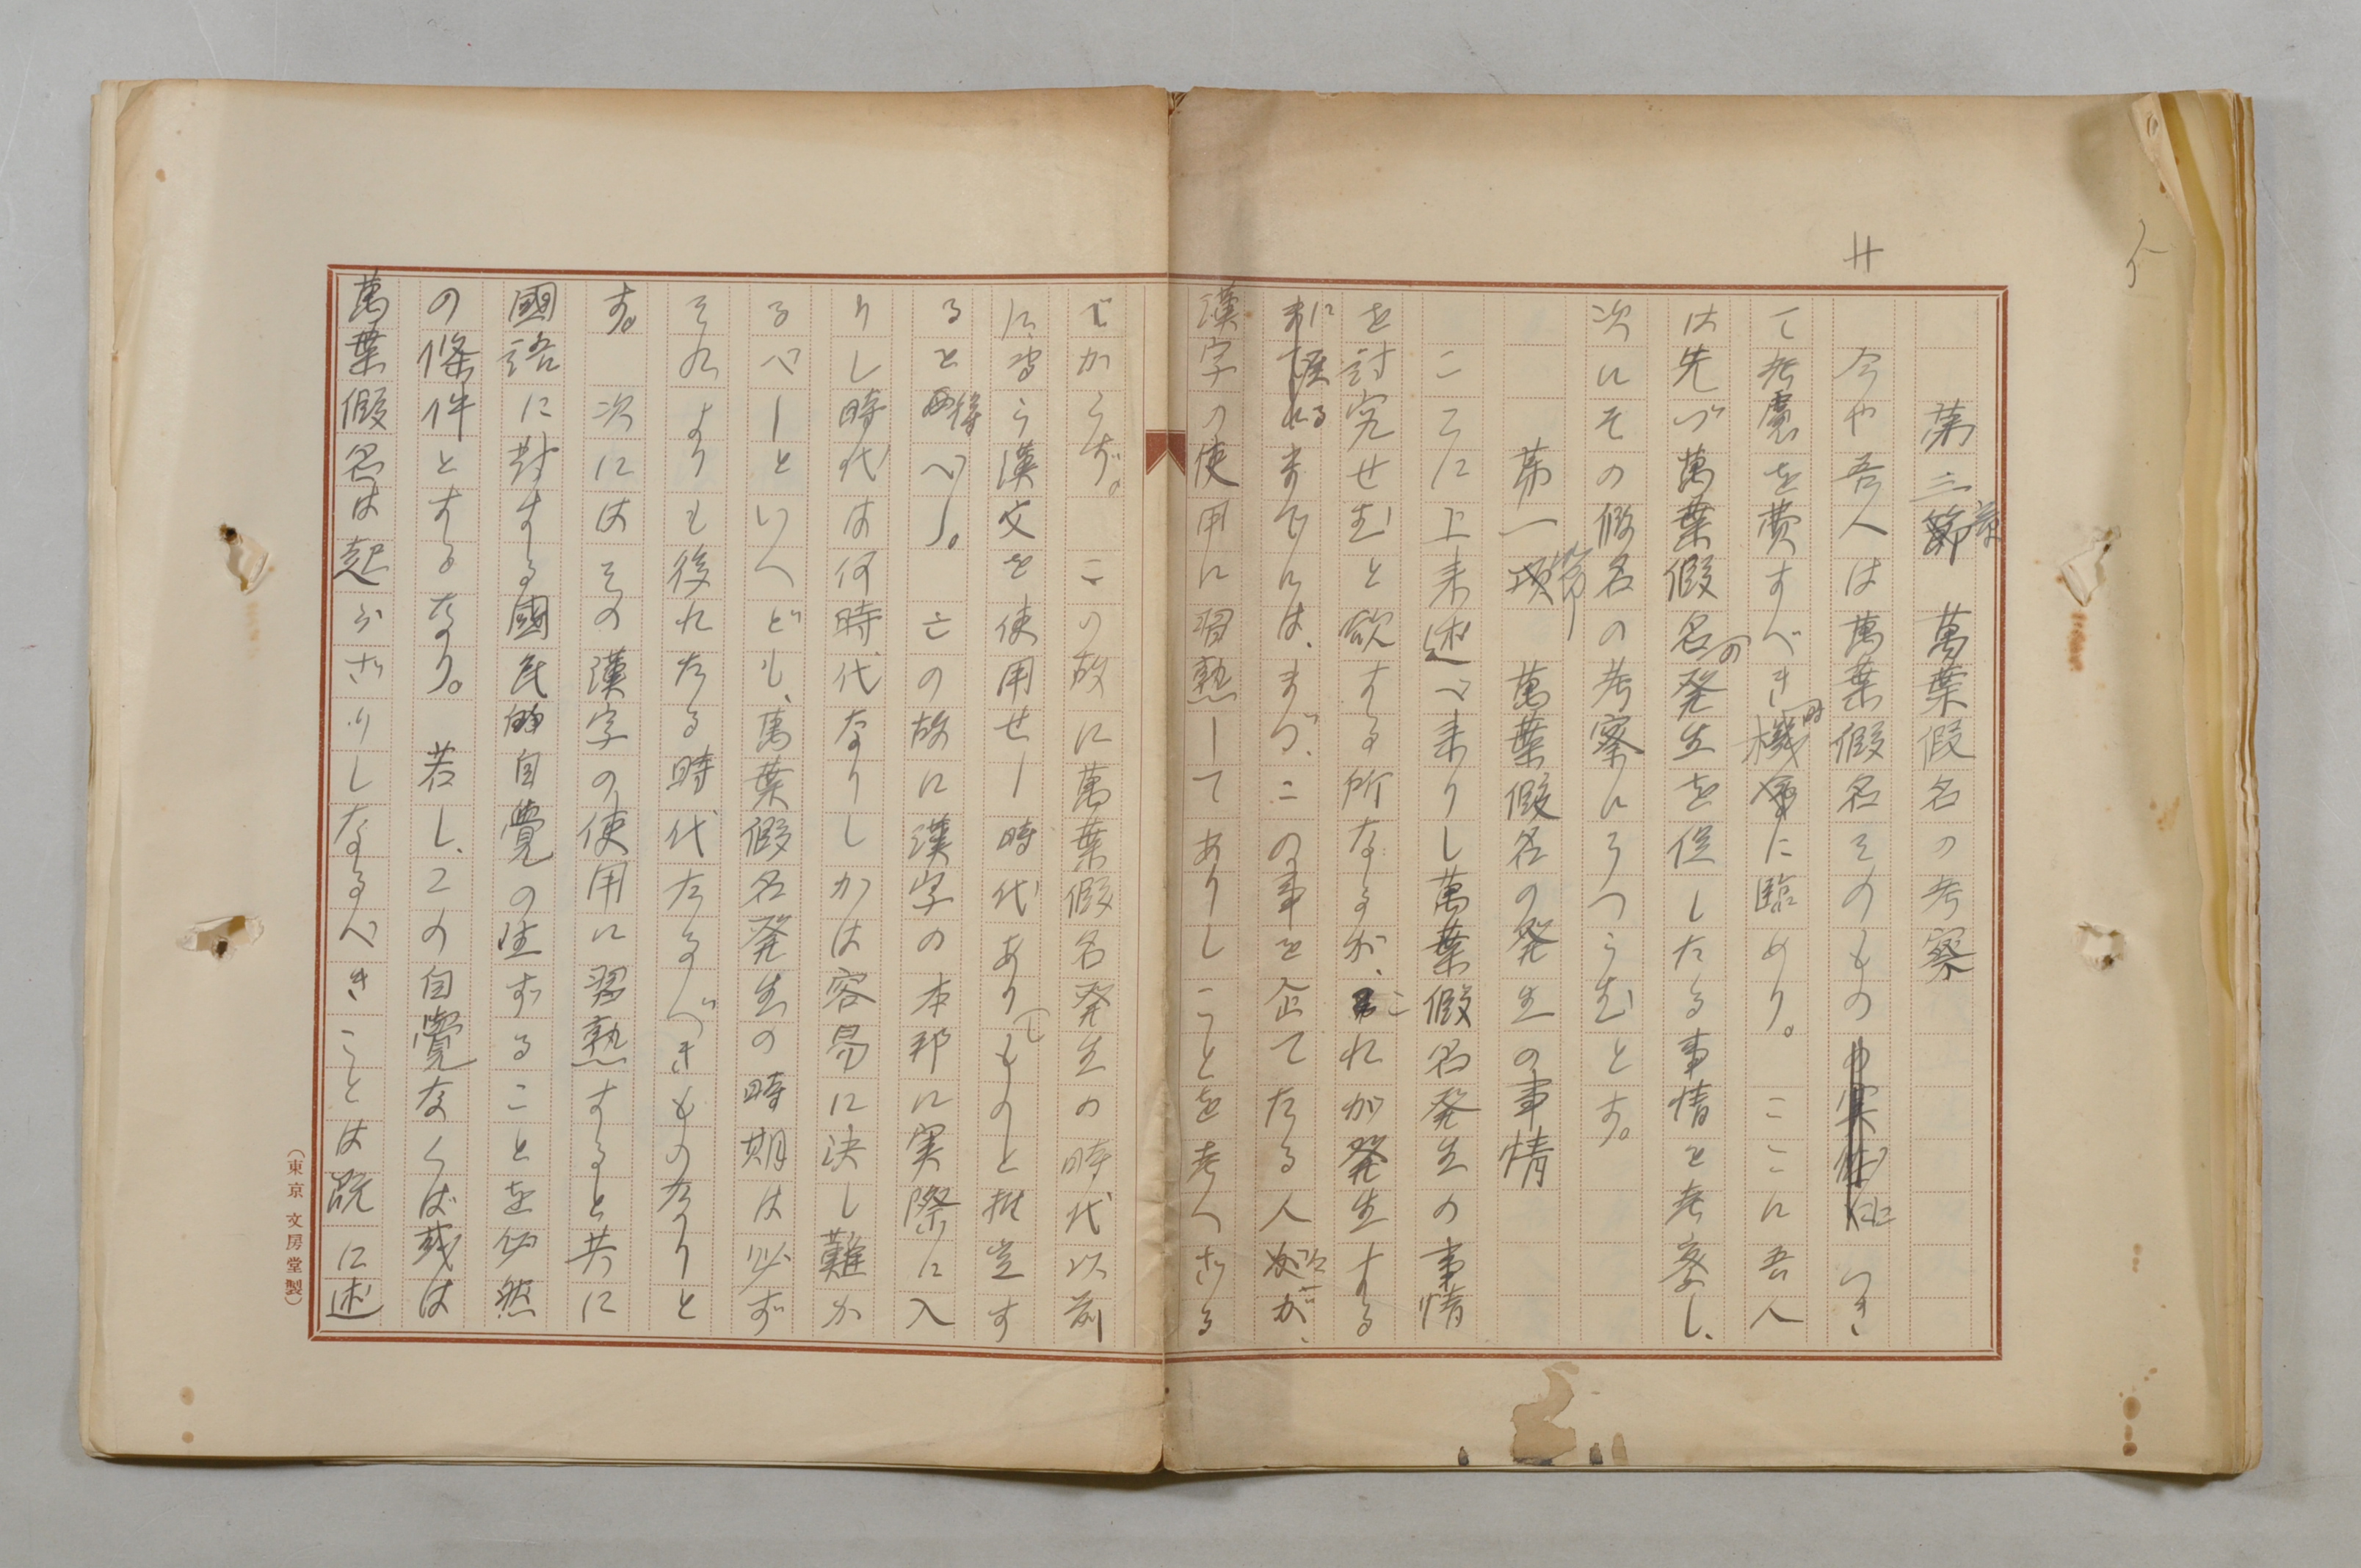 第三章 萬葉假名の考察
今や吾人は萬葉假名そのものにつき
て考慮を費すべき時機に臨めり。 ここに吾人
は先づ萬葉假名の発生を促したる事情を考察し、
次にその假名の考察にうつらむとす。
第一節 萬葉假名の発生の事情
ここに上来述べ来りし萬葉假名発生の事情
を討究せむと欲する所なるが、これが発生する
に至れるまでには、まづ、この事を企てたる人が、
漢字の使用に習熟してありしことを考へざる
べからず。 この故に萬葉假名発生の時代以前
に、まづ漢文を使用せし時代ありしものと推定す
ると得べし。 この故に漢字の本邦に実際に入
りし時代は何時代なりしかは容易に決し難か
るべしといへども、萬葉假名発生の時期は必ず
それよりも後れたる時代たるべきものなりと
す。 次にはその漢字の使用に習熟すると共に
國語に対する國民的自覺の生ずることを必然
の條件とするなり。 若し、この自覺なくば或は
萬葉假名は起らざりしなるべきことは既に述
（東京 文房堂製）